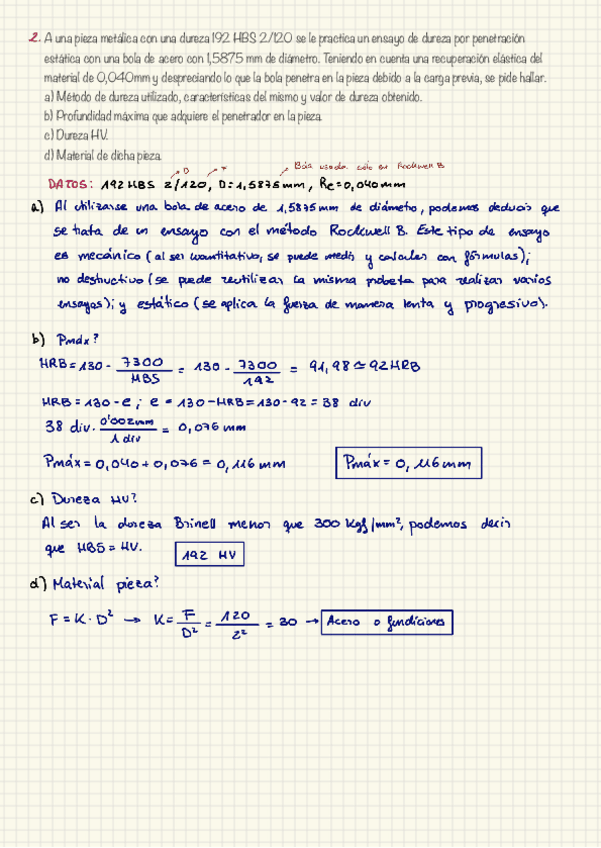 2. A una pieza metálica con una dureza 192 HBS 2/120 se le practica un ensayo de dureza por penetración
estática con una bola de acero con 1,5875 mm de diámetro. Teniendo en cuenta una recuperación elástica del
material de 0,040mm y despreciando lo que la bola penetra en la pieza debido a la carga previa, se pide hallar.
a) Método de dureza utilizado, características del mismo y valor de dureza obtenido.
b) Profundidad máxima que adquiere el penetrador en la pieza.
c) Dureza HV.
d) Material de dicha pieza.
D F Bola usada sólo en Rockwell B
DATOS: 192HBS 2/120, D=1,5875mm, Re=0,040mm
a) Al utilizarse una bola de acero de 1,5875 mm de diámetro, podemos deducir que
se trata de un ensayo con el método Rockwell B. Este tipo de ensayo
es mecánico (al ser cuantitativo, se puede medir y calcular con fórmulas);
no destructivo (se puede reutilizar la misma probeta para realizar varios
ensayos); y estático (se aplica la fuerza de manera lenta y progresiva).
b) Pmáx?
HRB = 130 - 7300/HBS = 130 - 7300/192 = 91,98 ≃ 92HRB
HRB = 130 - e ; e = 130 - HRB = 130 - 92 = 38 div
38 div · 0'002mm/1 div = 0,076 mm
Pmáx = 0,040 + 0,076 = 0,116 mm Pmáx = 0,116mm
c) Dureza HV?
Al ser la dureza Brinell menor que 300 Kgf/mm², podemos decir
que HBS = HV. 192 HV
d) Material pieza?
F = K · D² → K = F/D² = 120/2² = 30 → Acero o fundiciones